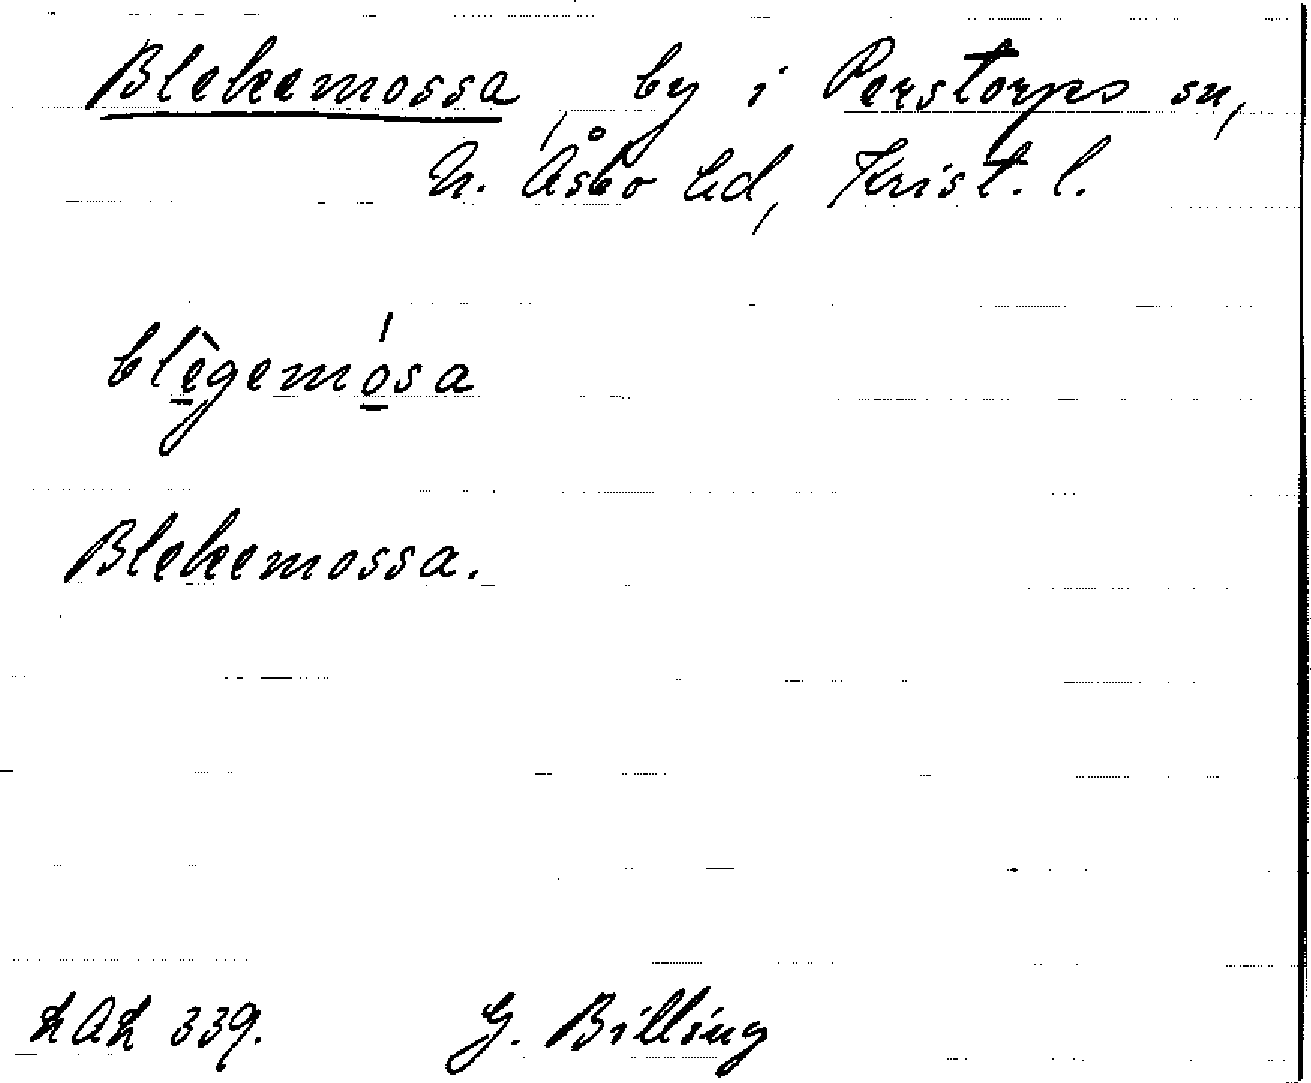 Blekemossa by i Perstorps sn,
N. Åsbo hd, Krist. l.
blègemósa
Blekemossa.
LAL 339. G. Billing